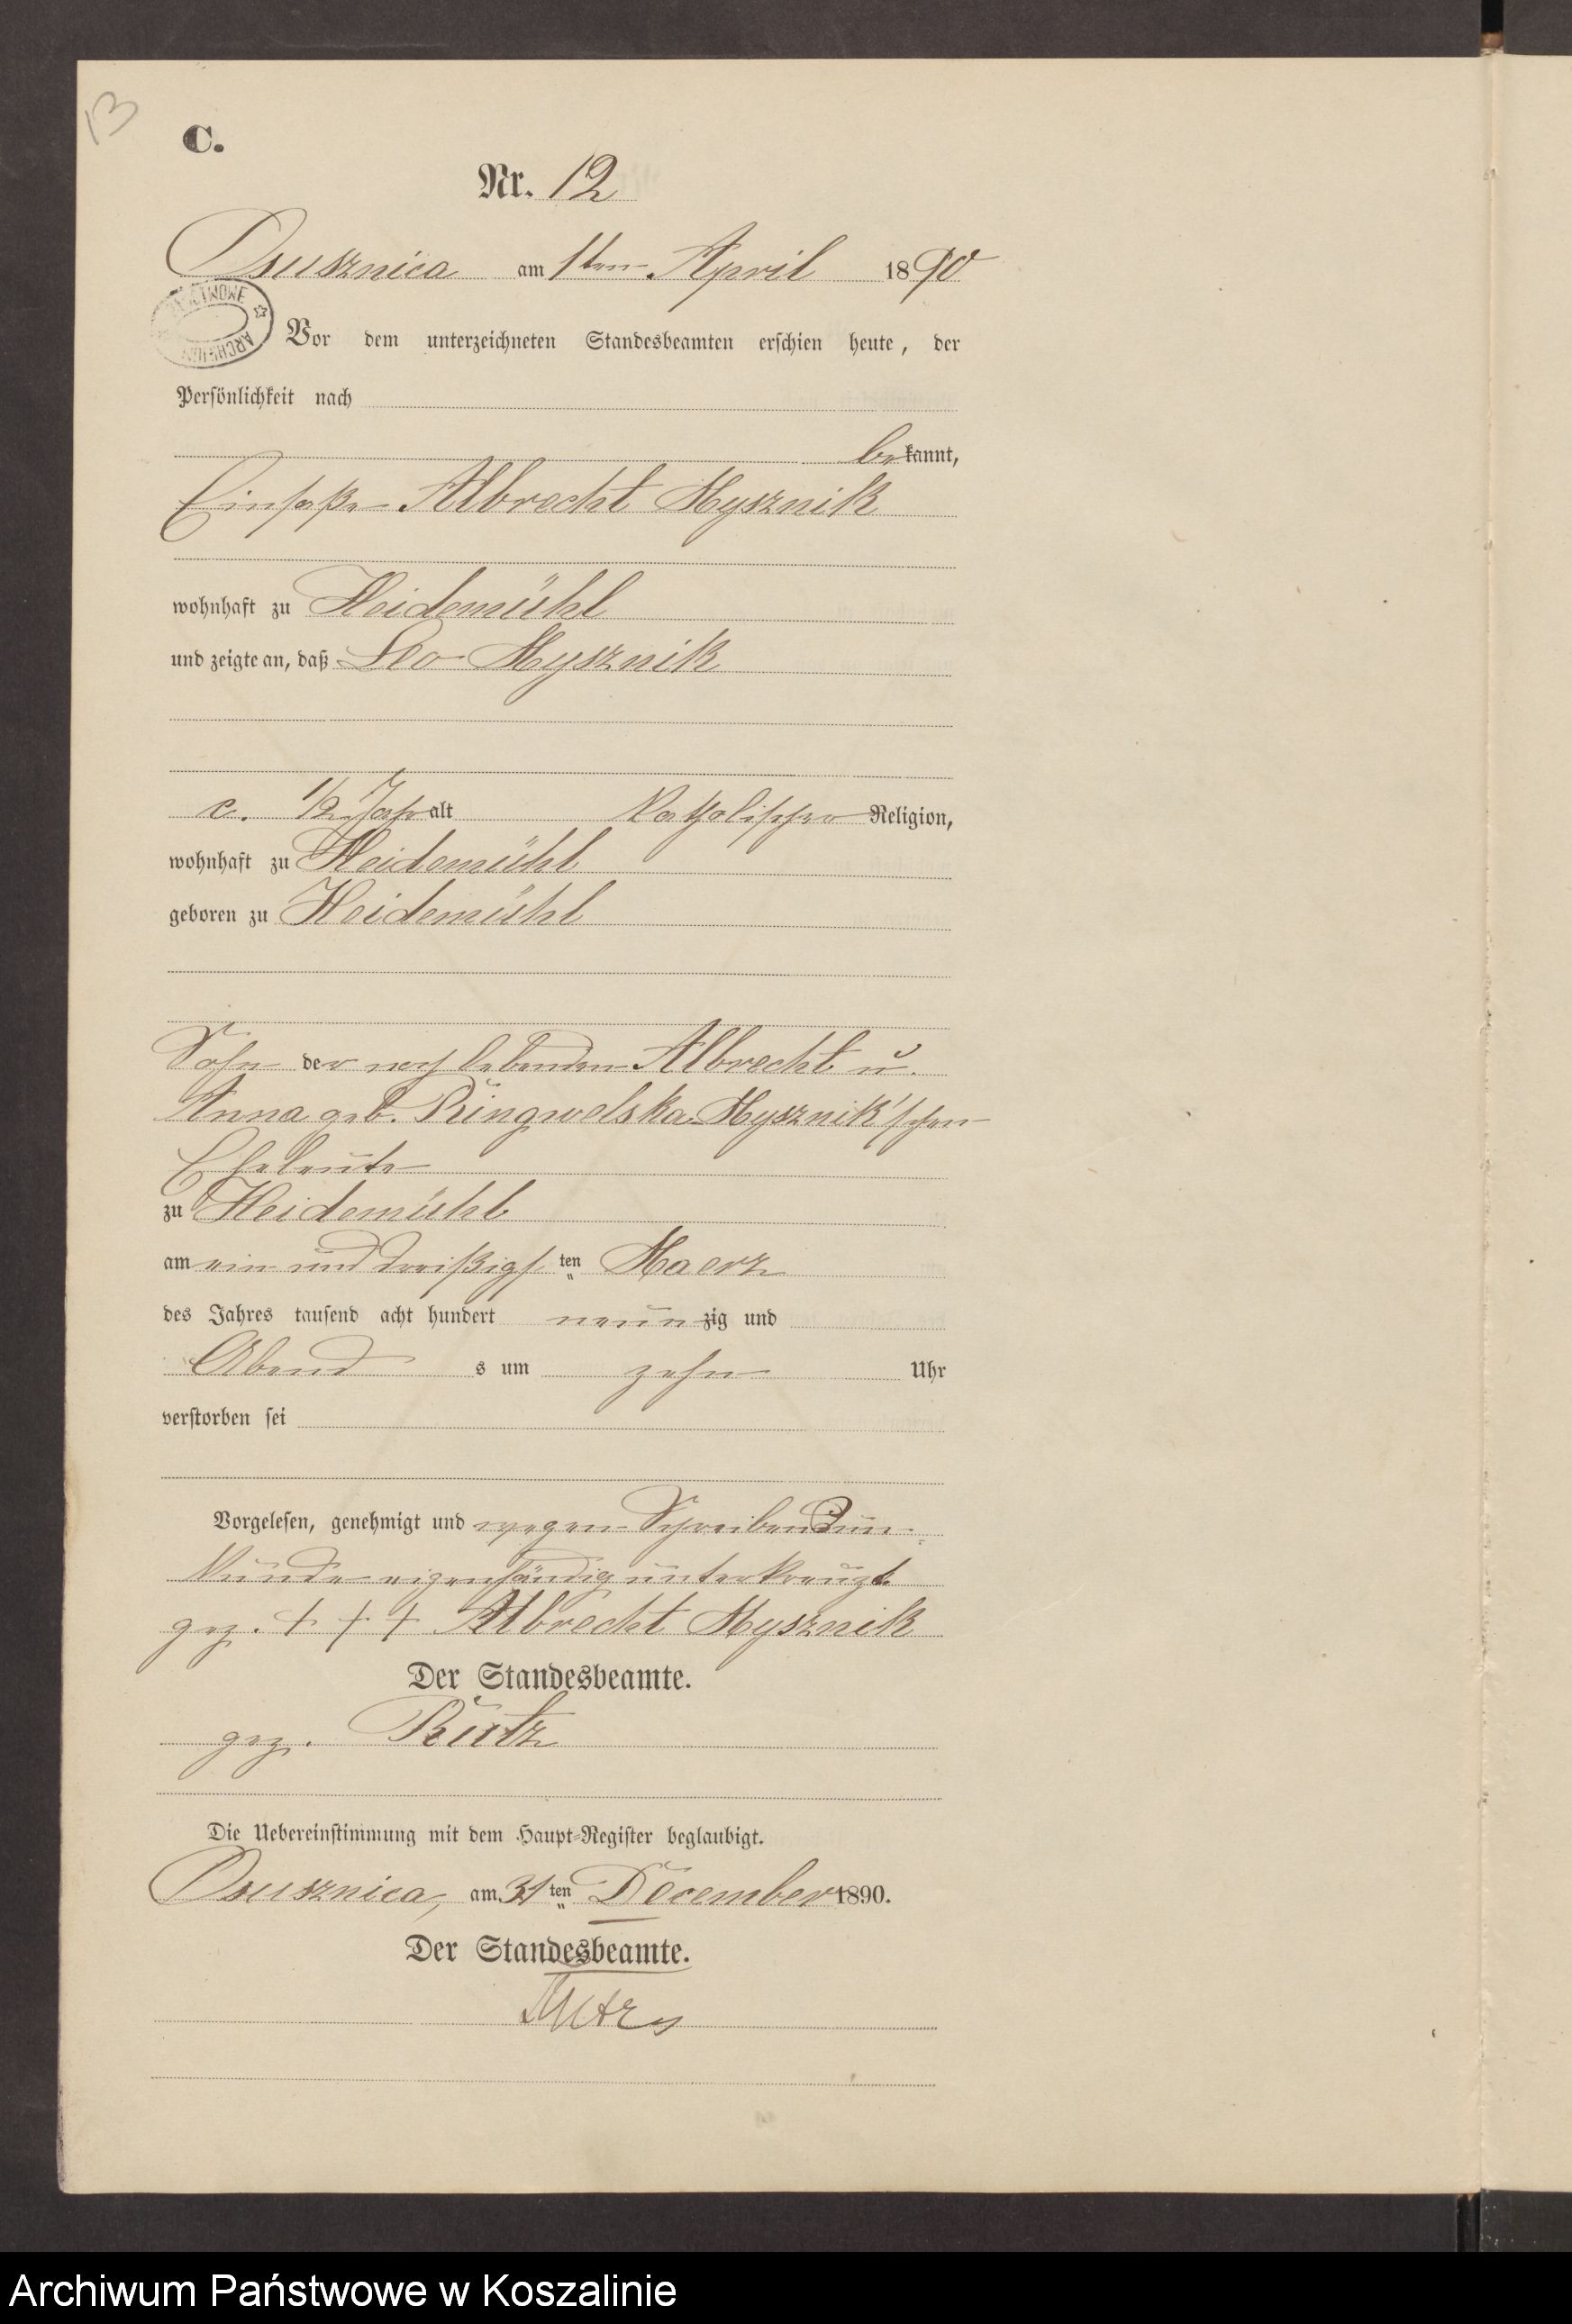 13
C.
Nr. 12
Osusznica am 1ten April 1890
Vor dem unterzeichneten Standesbeamten erschien heute, der
Persönlichkeit nach
bekannt,
Einsaße Albrecht Mysznik
wohnhaft zu Heidemühl
und zeigte an, daß Leo Mysznik
c. 1/2 Jahr alt Katholischer Religion,
wohnhaft zu Heidemühl
geboren zu Heidemühl
Sohn der noch lebenden Albrecht u.
Anna geb. Ringwelska Mysznik'schen
Eheleute
zu Heidemühl
am ein und dreißigsten Maerz
des Jahres tausend acht hundert neunzig und
Abends um zehn Uhr
verstorben sei
Vorgelesen, genehmigt und wegen Schreibensun-
kunde eigenhändig unterkreuzt
gez. + + + Albrecht Mysznik
Der Standesbeamte.
gez. Rutz
Die Uebereinstimmung mit dem Haupt-Register beglaubigt.
Osusznica, am 31ten December 1890.
Der Standesbeamte.
Rutz
Archiwum Państwowe w Koszalinie